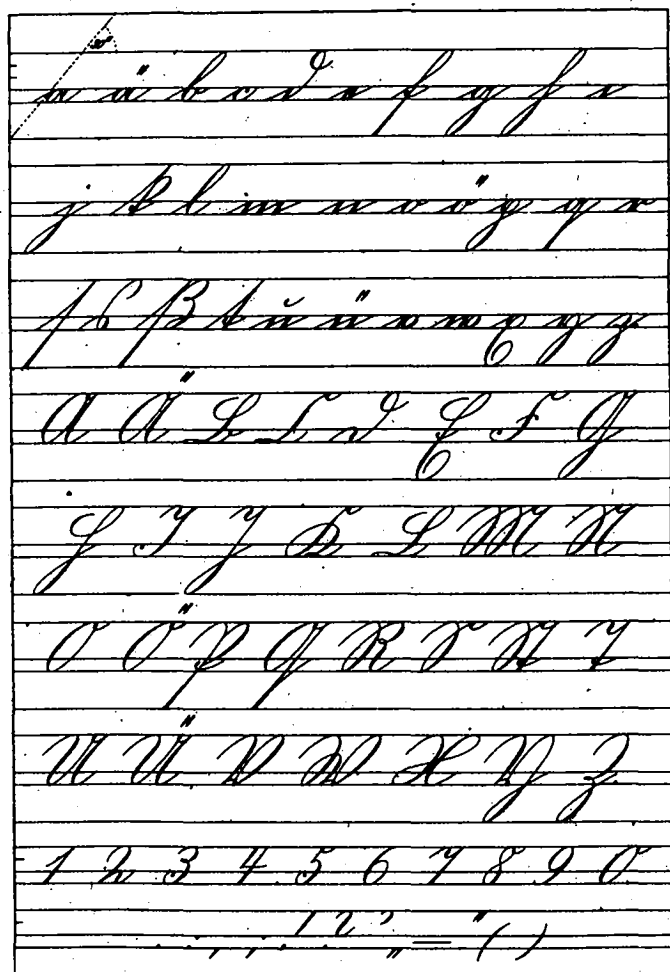 a ä b c d e f g h i
j k l m n o ö p q r
ſ s ß t u ü v w x y z
A Ä B C D E F G
H I J K L M N
O Ö P Q R S St T
U Ü V W X Y Z
1 2 3 4 5 6 7 8 9 0
. , ; : ! ? ' „ = " ( )